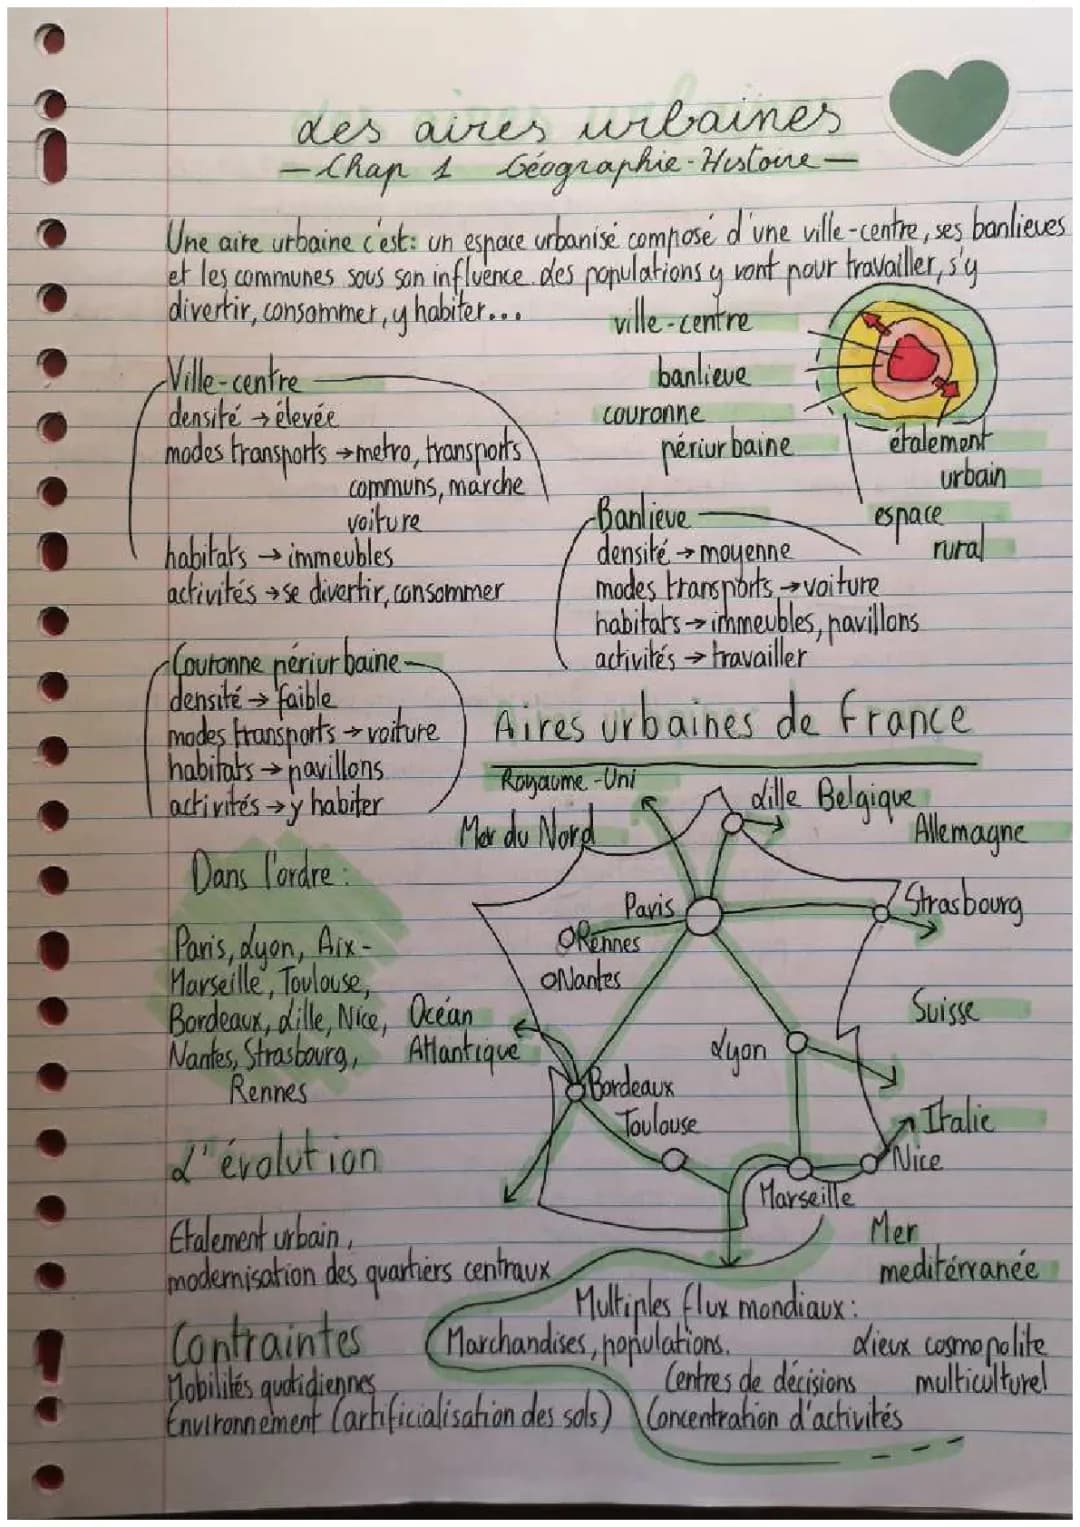 Les aires urbaines
- Chap 1 Géographie-Histoire -
Une aire urbaine c'est: un espace urbanisé composé d'une ville-centre, ses banlieues
et les communes sous son influence. des populations y vont pour travailler, s'y
divertir, consommer, y habiter...
ville-centre
banlieue
couronne
périurbaine
étalement
urbain
espace
rural
Ville-centre
densité → élevée
modes transports → metro, transports
communs, marche
voiture
habitats → immeubles
activités → se divertir, consommer
Banlieue
densité → moyenne
modes transports → voiture
habitats → immeubles, pavillons
activités → travailler
Couronne périurbaine
densité → faible
modes transports → voiture
habitats → pavillons
activités → y habiter
Aires urbaines de France
Royaume-Uni
Mer du Nord
Lille Belgique
Allemagne
Paris
Strasbourg
Rennes
Nantes
Océan
Atlantique
Suisse
Lyon
Bordeaux
Toulouse
Italie
Nice
Marseille
Mer
mediterranée
Dans l'ordre:
Paris, Lyon, Aix-
Marseille, Toulouse,
Bordeaux, Lille, Nice,
Nantes, Strasbourg,
Rennes
L'évolution
Etalement urbain,
modernisation des quartiers centraux
Contraintes
Mobilités quotidiennes
Environnement (artificialisation des sols)
Multiples flux mondiaux:
Marchandises, populations.
Lieux cosmopolite
multiculturel
Centres de décisions
Concentration d'activités